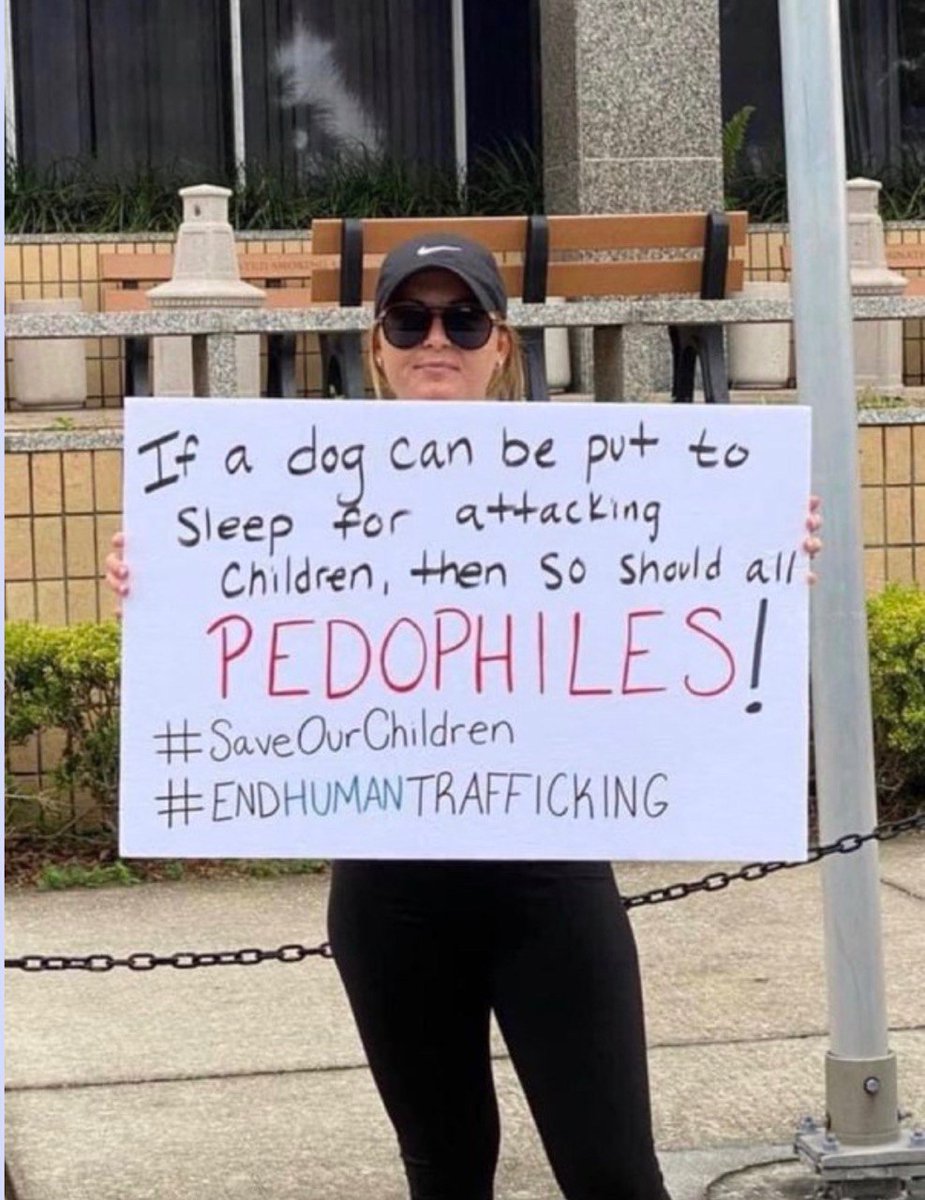 If a dog can be put to
Sleep for attacking
Children, then so should all
PEDOPHILES!
#SaveOurChildren
#ENDHUMANTRAFFICKING